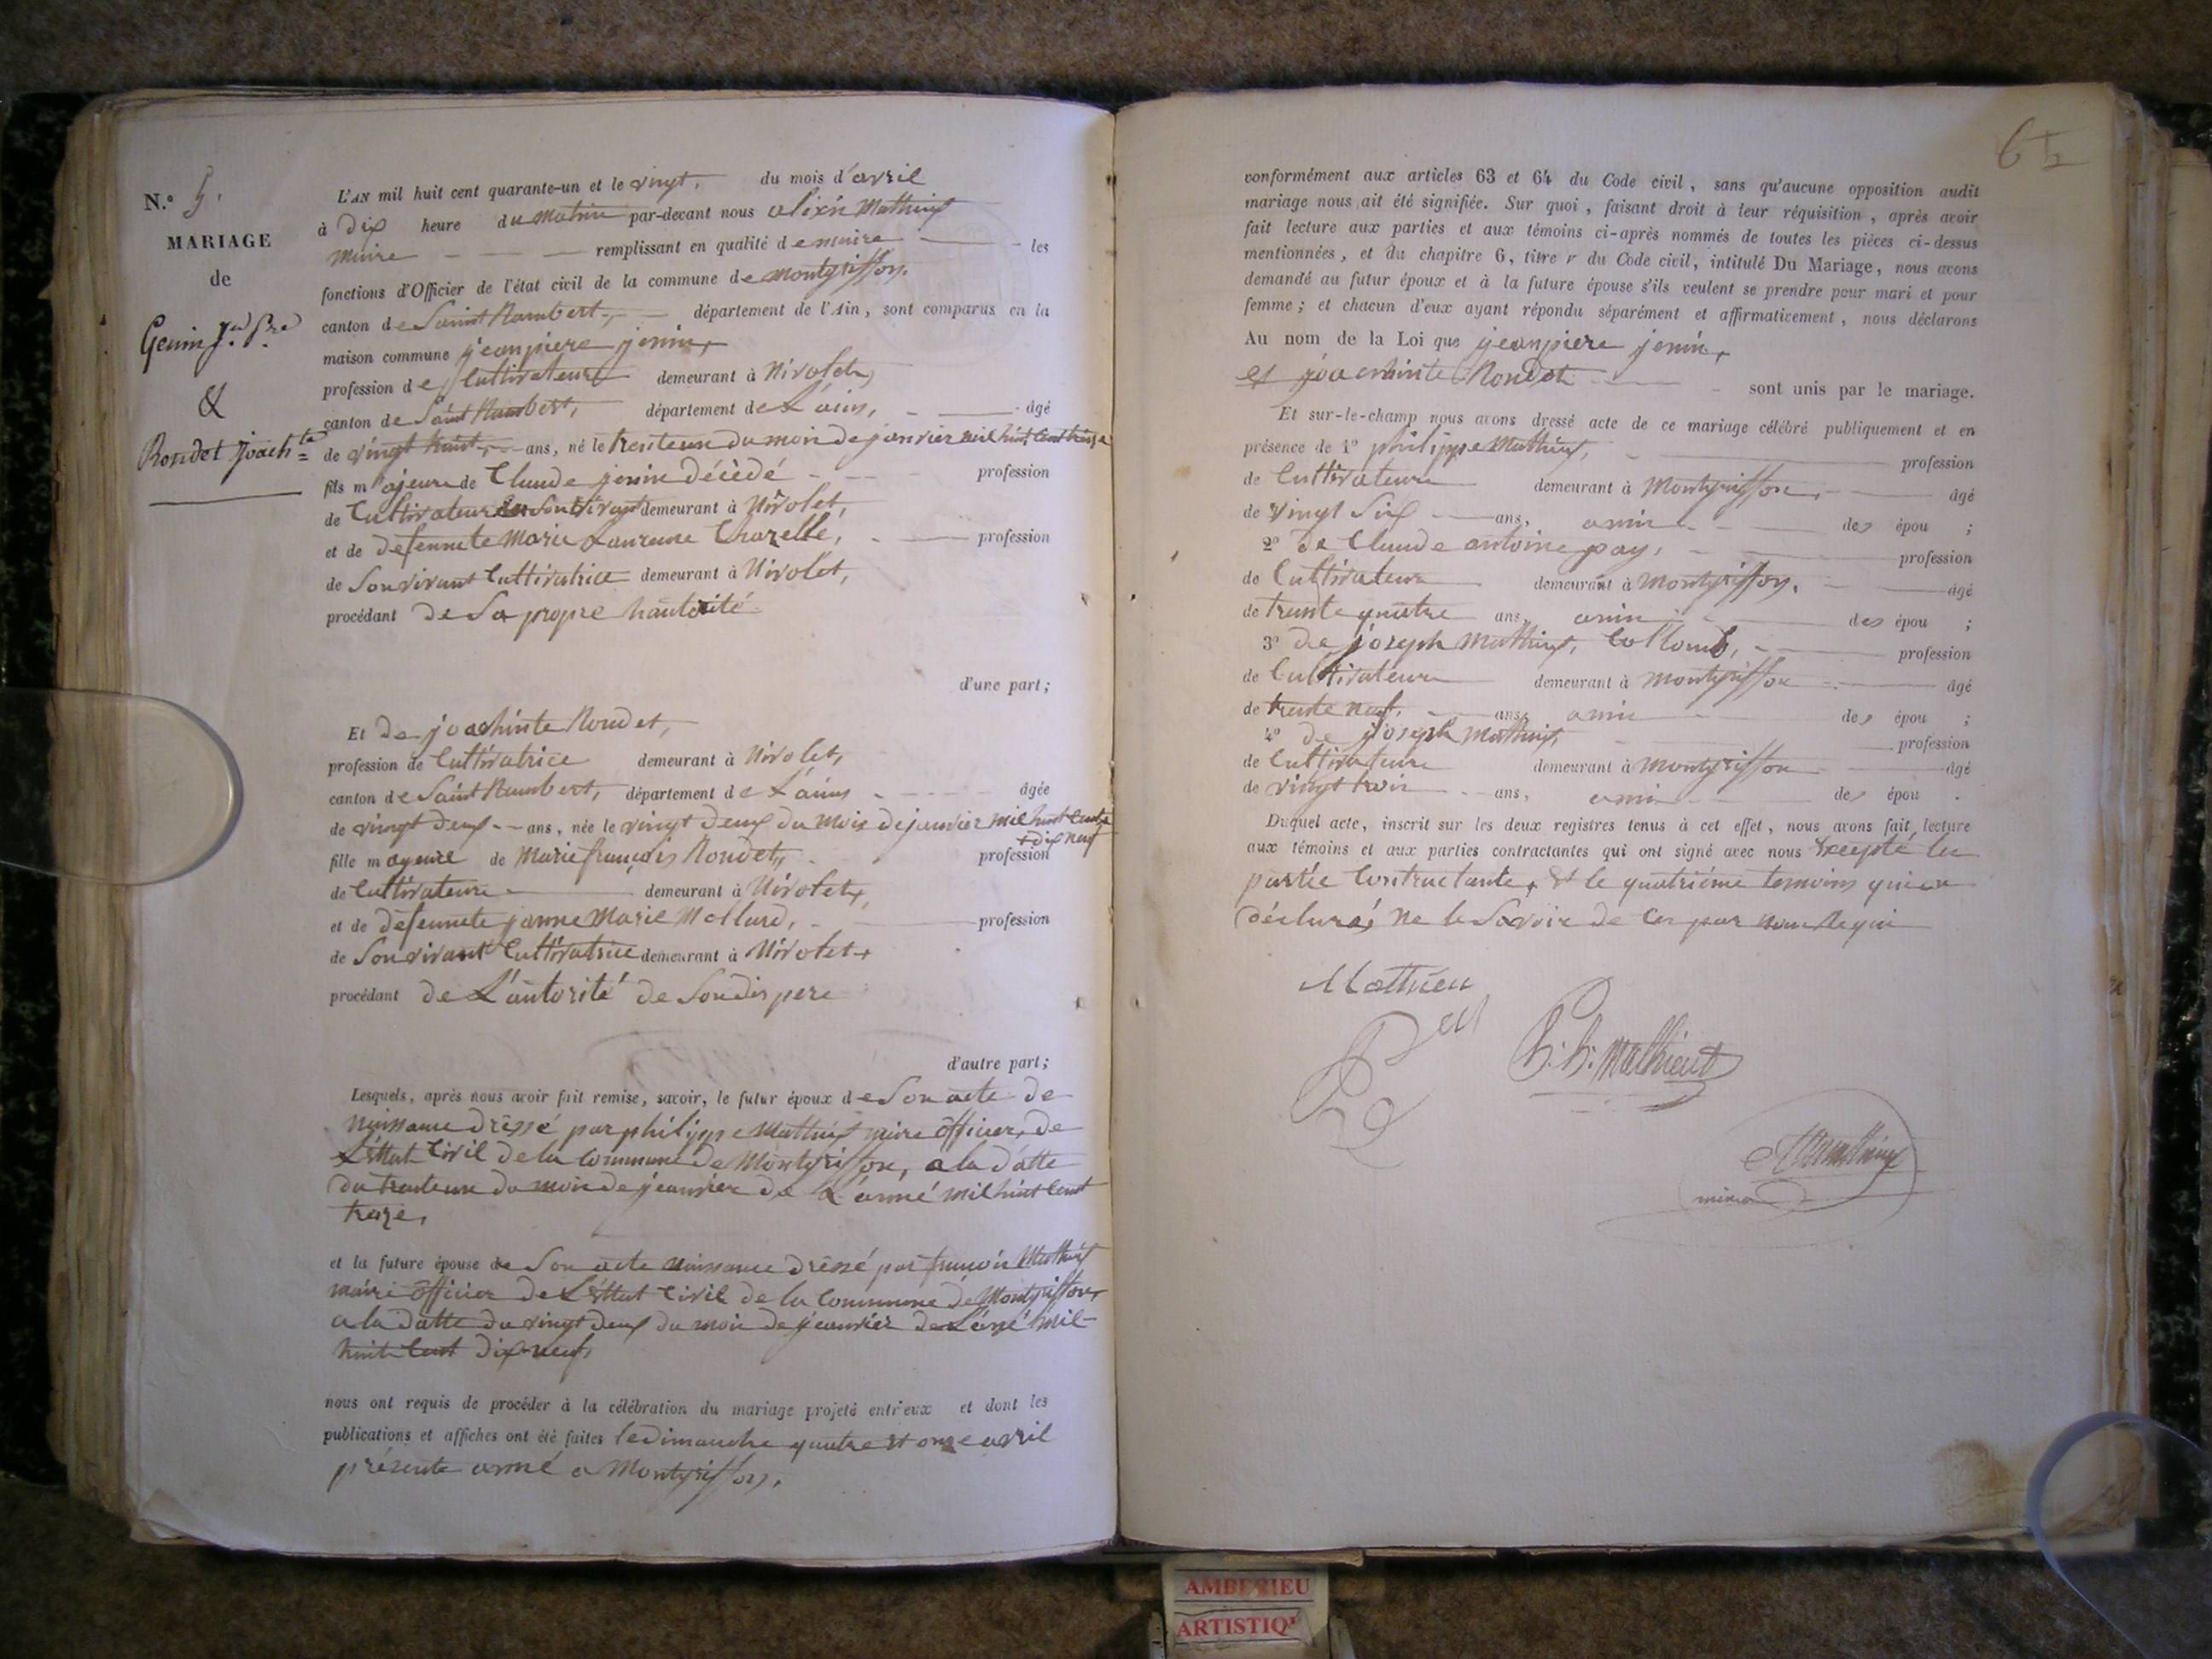 N.° 5.
MARIAGE
de
Genin J.n P.re
&
Rondet Joach.te
L'AN mil huit cent quarante-un et le vingt, du mois d'avril
à dix heure du matin par-devant nous alixis Mathieux
maire remplissant en qualité de maire les
fonctions d'Officier de l'état civil de la commune de Montgriffon,
canton de Saint Rambert, département de l'Ain, sont comparus en la
maison commune jeanpiere jenin,
profession de Cultivateure demeurant à Nivolet,
canton de Saint Rambert, département de L'ains, âgé
de vingt huit ans, né le trenteun du mois de janvier mil huit cent treize
fils majeure de Claude jenin décèdé profession
de Cultivateur de Sonvivant demeurant à Nivolet,
et de defeunte Marie Laurence Charelle, profession
de Sonvivant Cultivatrice demeurant à Nivolet,
procédant de Sa propre hautorité
d'une part;
Et de joachinte Rondet,
profession de Cultivatrice demeurant à Nivolet,
canton de Saint Rambert, département de L'ains âgée
de vingt deux ans, née le vingt deux du mois de janvier mil huit cent
dix neuf
fille mageure de Marie françois Rondet, profession
de Cultivateure demeurant à Nivolet,
et de defeunte janne Marie Mollard, profession
de Sonvivant Cultivatrice demeurant à Nivolet
procédant de L'autorité de Sondis pere
d'autre part;
Lesquels, après nous avoir fait remise, savoir, le futur époux de Son acte de
naissance dressé par philippe Mathieux maire officier, de
L'éttat Civil de la Commune de Montgriffon, a la datte
du trenteun du mois de jeanvier de L'anné mil huit Cent
treze,
et la future épouse de Son acte naissance dressé par francois Mathieux
maire officier de L'éttat Civil de la Commune de Montgriffon,
a la datte du vingt deux du mois de jeanvier de L'anné mil
huit Cent dix-neuf,
nous ont requis de procéder à la célébration du mariage projeté entr'eux et dont les
publications et affiches ont été faites le dimanche quatre et onze avril
présente anné a Montgriffon,
conformément aux articles 63 et 64 du Code civil, sans qu'aucune opposition audit
mariage nous ait été signifiée. Sur quoi, faisant droit à leur réquisition, après avoir
fait lecture aux parties et aux témoins ci-après nommés de toutes les pièces ci-dessus
mentionnées, et du chapitre 6, titre v du Code civil, intitulé Du Mariage, nous avons
demandé au futur époux et à la future épouse s'ils veulent se prendre pour mari et pour
femme; et chacun d'eux ayant répondu séparément et affirmativement, nous déclarons
Au nom de la Loi que jeanpiere jenin,
et joachinte Rondet sont unis par le mariage.
Et sur-le-champ nous avons dressé acte de ce mariage célébré publiquement et en
présence de 1° philippe Mathieux, profession
de Cultivateure demeurant à Montgriffon, âgé
de vingt Six ans, amis des épou ;
2° de Claude antoine pay, profession
de Cultivateure demeurant à Montgriffon, âgé
de trente quatre ans, amis des épou ;
3° de joseph Mathieux, Collomb, profession
de Cultivateure demeurant à Montgriffon âgé
de trente neuf, ans, amis des épou ;
4° de joseph Mathieux, profession
de Cultivateure demeurant à Montgriffon âgé
de vingt trois ans, amis des épou .
Duquel acte, inscrit sur les deux registres tenus à cet effet, nous avons fait lecture
aux témoins et aux parties contractantes qui ont signé avec nous Excepté les
partie Contractante, Et le quatriéme temoins qui on
déclarés ne le Savoir de Ces par nous Requi
Mathieu
Mathieux
maire
AMBERIEU
ARTISTIQ